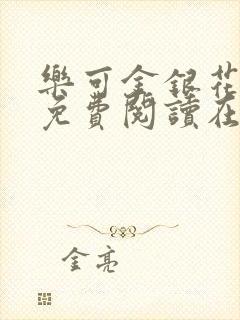 樂可金銀花
免費閱讀在
金亮